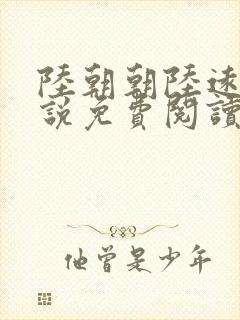 陸朝朝陸遠
說免費閱讀
他曾是少年